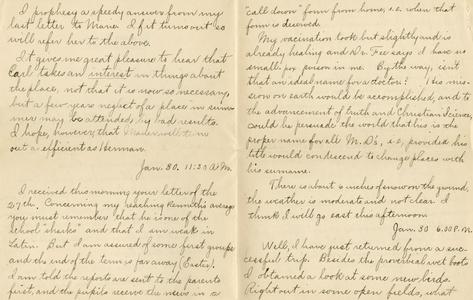 I prophesy a speedy answer from my
last letter to Marie. If it turns out so
will refer her to the above.
It gives me great pleasure to hear that
Carl takes an interest in things about
the place, not that it is now so necessary,
but a few years neglect of a place in sum-
mer may be attended by bad results.
I hope, however, that
out as efficient as Herman.
Jan. 30. 11:30 A.M.
I received this morning your letter of the
27th. Concerning my reaching Kenneth's average
you must remember that he is one of the
school "sharks" and that I am weak in
Latin. But I am assured of some first groups
and the end of the term is far away (Easter).
I am told the reports are sent to the parents
first, and the pupils receive the news in a
"call down" form from home, i.e. when that
form is deserved.
My vaccination took but slightly and is
already healing and Dr. Fee says I have no
small pox poison in me. By the way, isn't
that an ideal name for a doctor? His mis-
sion on earth would be accomplished, and to
the advancement of truth and Christian Science,
could he persuade the world that his is the
proper name for all M.D's, i.e., provided his
title would condescend to change places with
his surname.
There is about 6 inches of snow on the ground,
the weather is moderate and not clear. I
think I will go east this afternoon.
Jan. 30 6.00 P.M.
Well, I have just returned from a suc-
cessful trip. Besides the proverbial wet boots
I obtained a look at some new birds.
Right out in some open fields, what